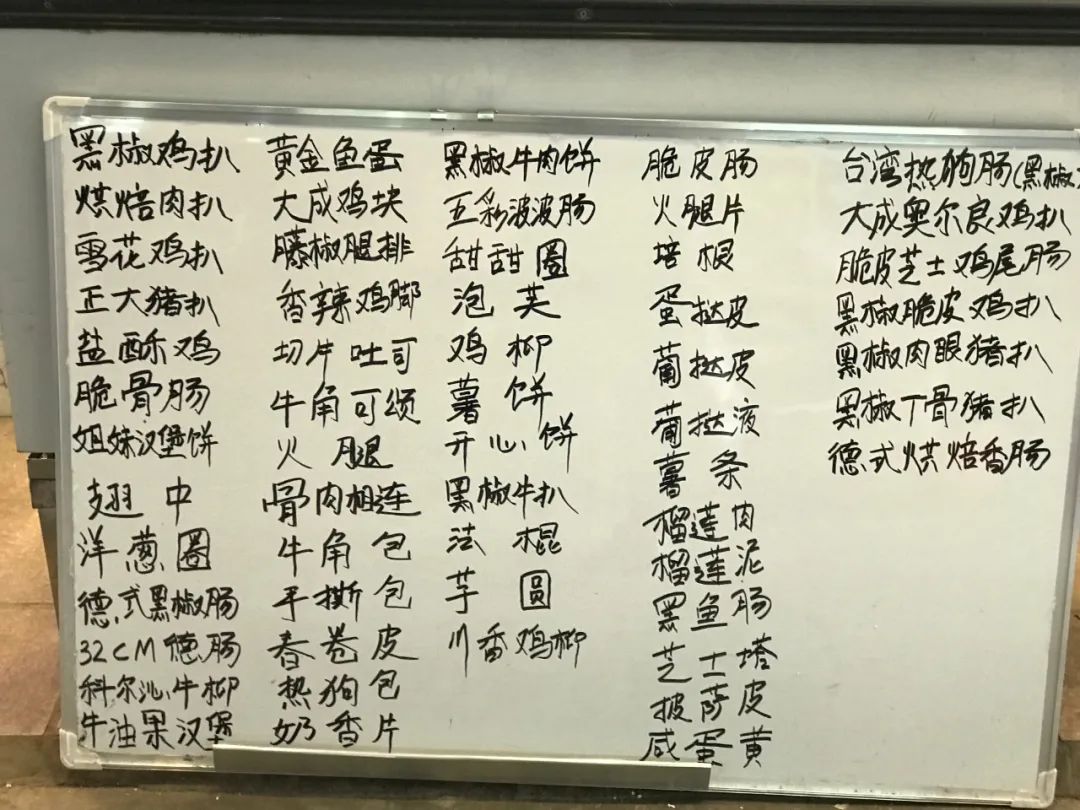 黑椒鸡扒
烘焙肉扒
雪花鸡扒
正大猪扒
盐酥鸡
脆骨肠
姐妹汉堡饼
翅中
洋葱圈
德式黑椒肠
32CM德肠
科尔沁牛柳
牛油果汉堡
黄金鱼蛋
大成鸡块
藤椒腿排
香辣鸡脚
切片吐司
牛角可颂
火腿
骨肉相连
牛角包
手撕包
春卷皮
热狗包
奶香片
黑椒牛肉饼
五彩波波肠
甜甜圈
泡芙
鸡柳
薯饼
开心饼
黑椒牛扒
法棍
芋圆
川香鸡柳
脆皮肠
火腿片
培根
蛋挞皮
葡挞皮
葡挞液
薯条
榴莲肉
榴莲泥
黑鱼肠
芝士塔
披萨皮
咸蛋黄
台湾热狗肠(黑椒
大成奥尔良鸡扒
脆皮芝士鸡尾肠
黑椒脆皮鸡扒
黑椒肉眼猪扒
黑椒丁骨猪扒
德式烘焙香肠